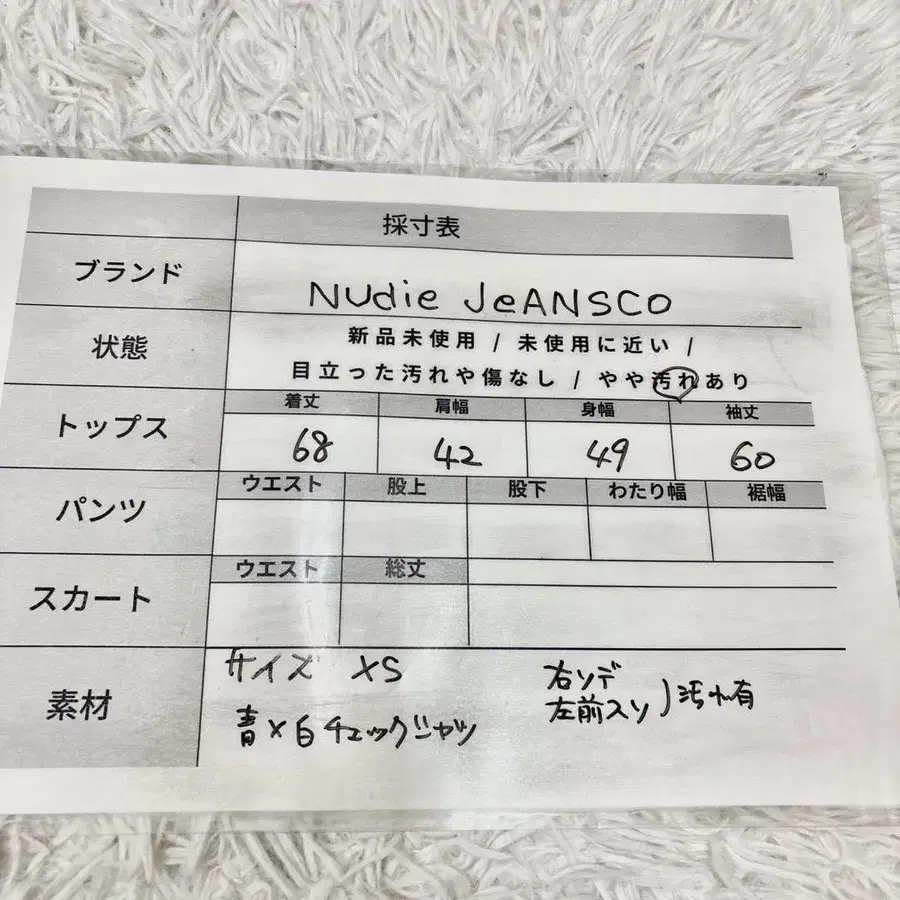 採寸表
ブランド
NUdie JeANSCO
状態
新品未使用 / 未使用に近い /
目立った汚れや傷なし / やや汚れあり
トップス
着丈 肩幅 身幅 袖丈
68 42 49 60
パンツ
ウエスト 股上 股下 わたり幅 裾幅
スカート
ウエスト 総丈
素材
サイズ XS
青×白チェックシャツ
右ソデ
左前スソ)汚れ有